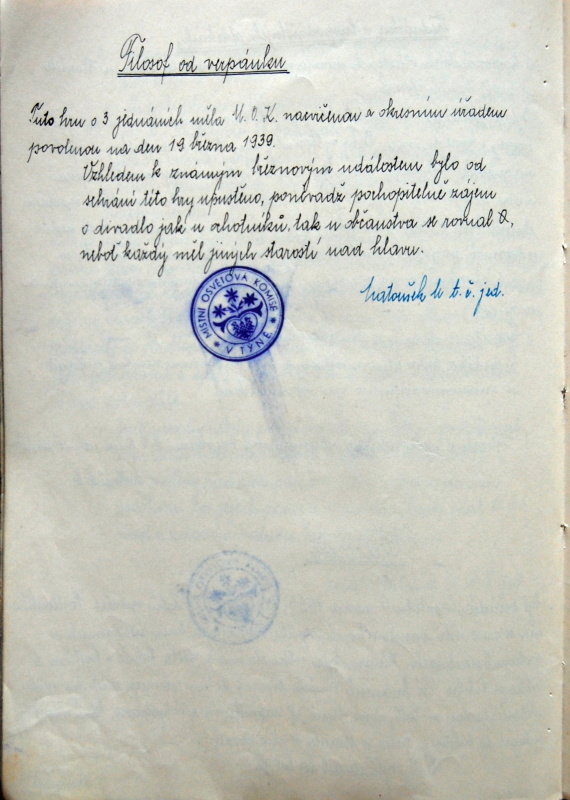 Filosof od verpánku
Tuto hru o 3 jednáních měla M. O. K. nacvičenou a okresním úřadem
povolenou na den 19 března 1939.
Vzhledem k známým březnovým událostem bylo od
sehrání této hry upuštěno, poněvadž pochopitelně zájem
o divadlo jak u ochotníků, tak u občanstva se rovnal 0,
neboť každý měl jiných starostí nad hlavu.
Matoušek t. č. jed.
MÍSTNÍ OSVĚTOVÁ KOMISE
V TÝNĚ